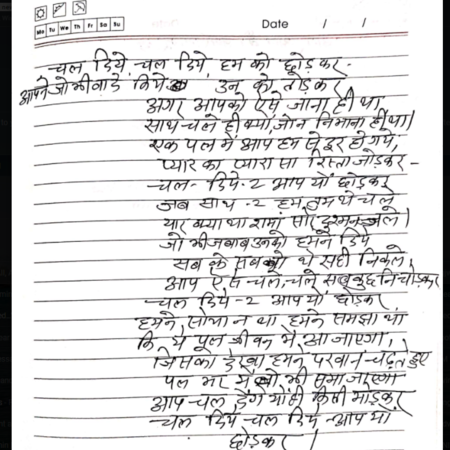 Date / /
Mo Tu We Th Fr Sa Su
चल दिये, चल दिये, हम को छोड़ कर -
आपने जो भी वादे किये उन को तोड़कर
अगर आपको ऐसे जाना ही था,
साथ चले ही क्यों, जो न निभाना ही था।
एक पल में आप हम से दूर हो गये,
प्यार का प्यारा सा रिस्ता जोड़कर -
चल - दिये - 2 आप यों छोड़कर
जब साथ - 2 हम तुम थे चले
यार क्या था शमां सारे दुश्मन जले।
जो भी जवाब उनको हमने दिये
सब के सब वो थे सही निकले,
आप ऐसे चले, चले सब कुछ निचोड़कर
चल दिये - 2 आप यों छोड़कर
हमने सोचा न था हमने समझा था
कि ये पल जीवन में आ जाएगा,
जिसको देखा हमने परवान चढ़ते हुए
पल भर में वो भी समा जाएगा
आप चल देंगे यों ही किसी मोड़कर
चल दिये - चल दिये - आप यों
छोड़कर।